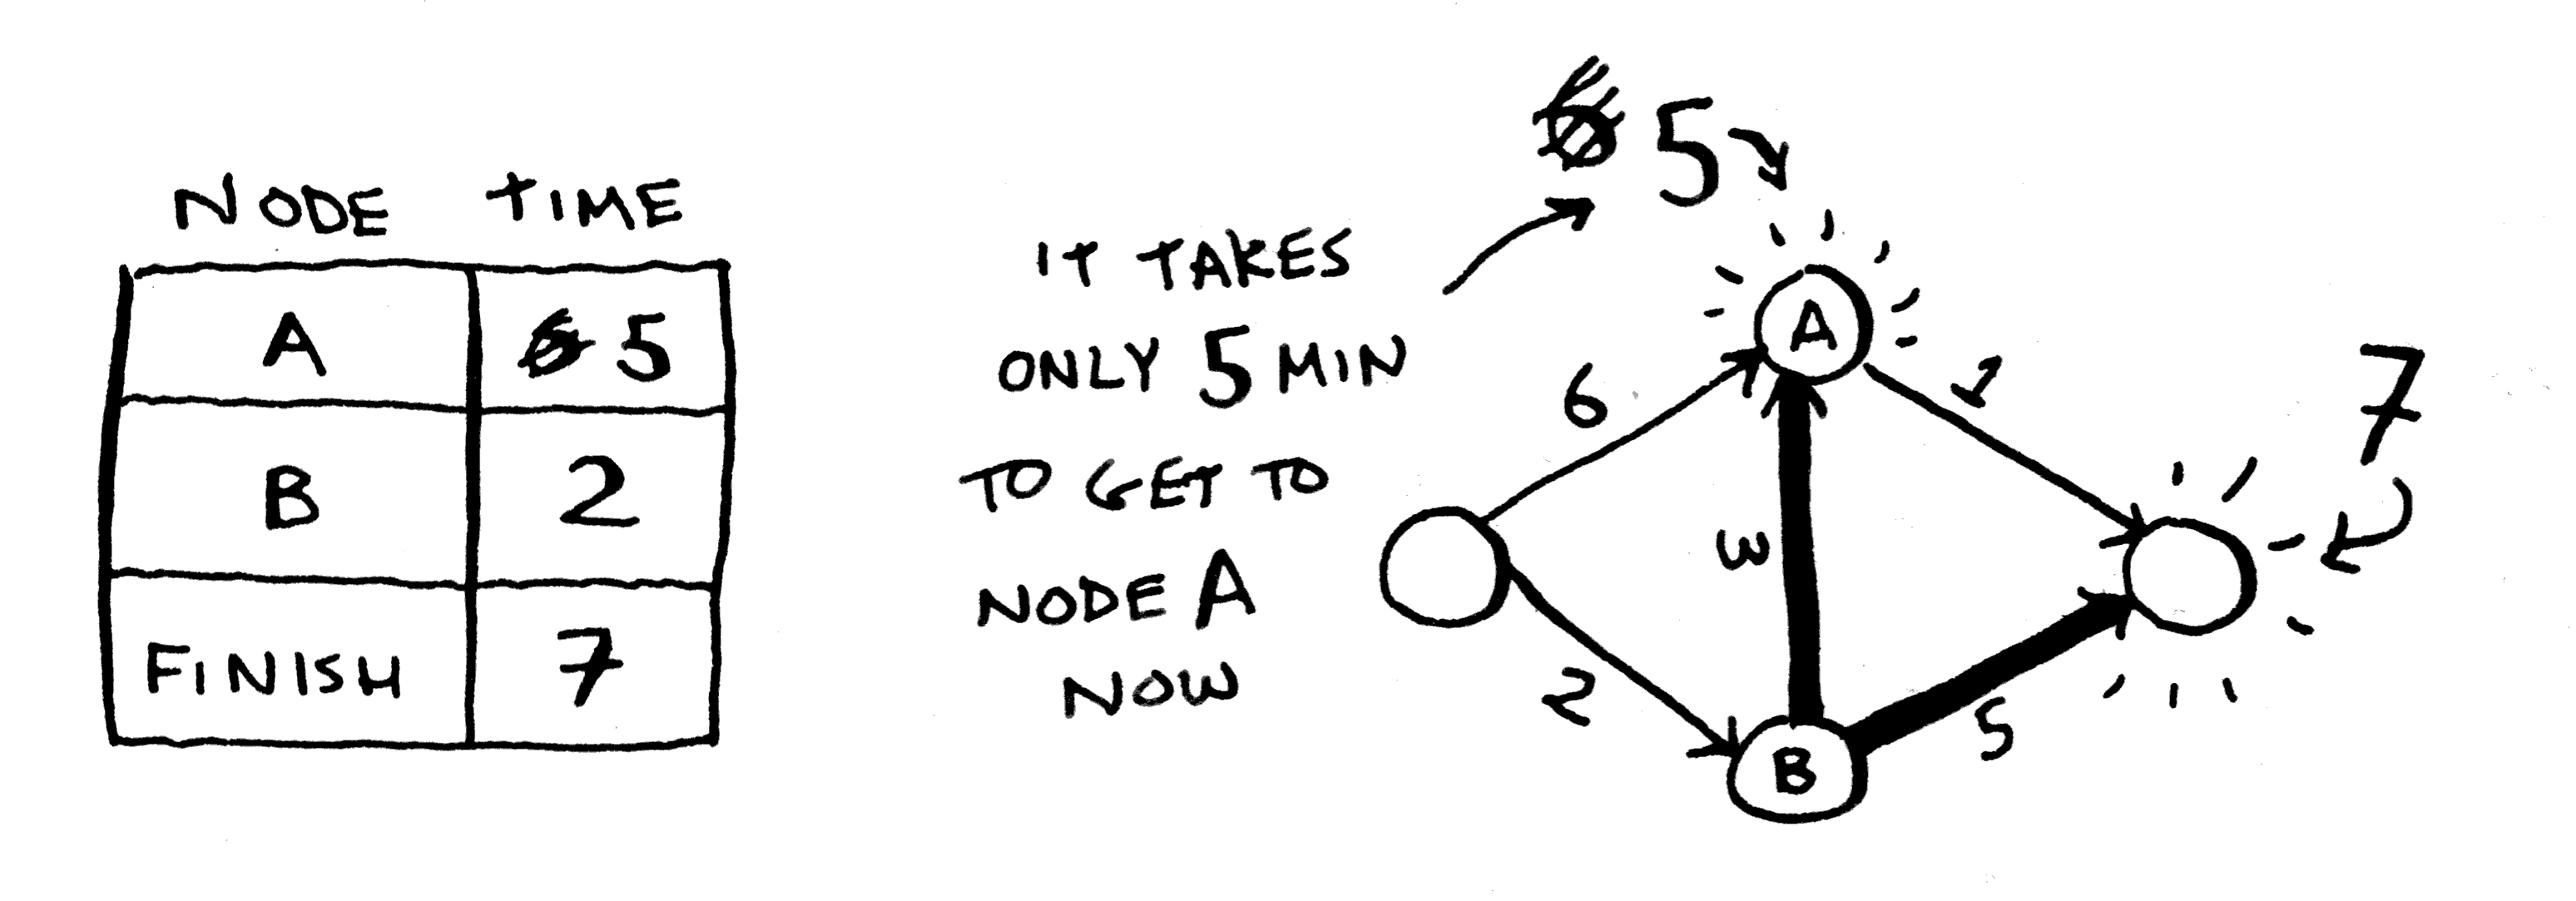 NODE TIME
A 6 5
B 2
FINISH 7
IT TAKES
ONLY 5 MIN
TO GET TO
NODE A
NOW
6 5
A
6
1
7
3
B
2
5